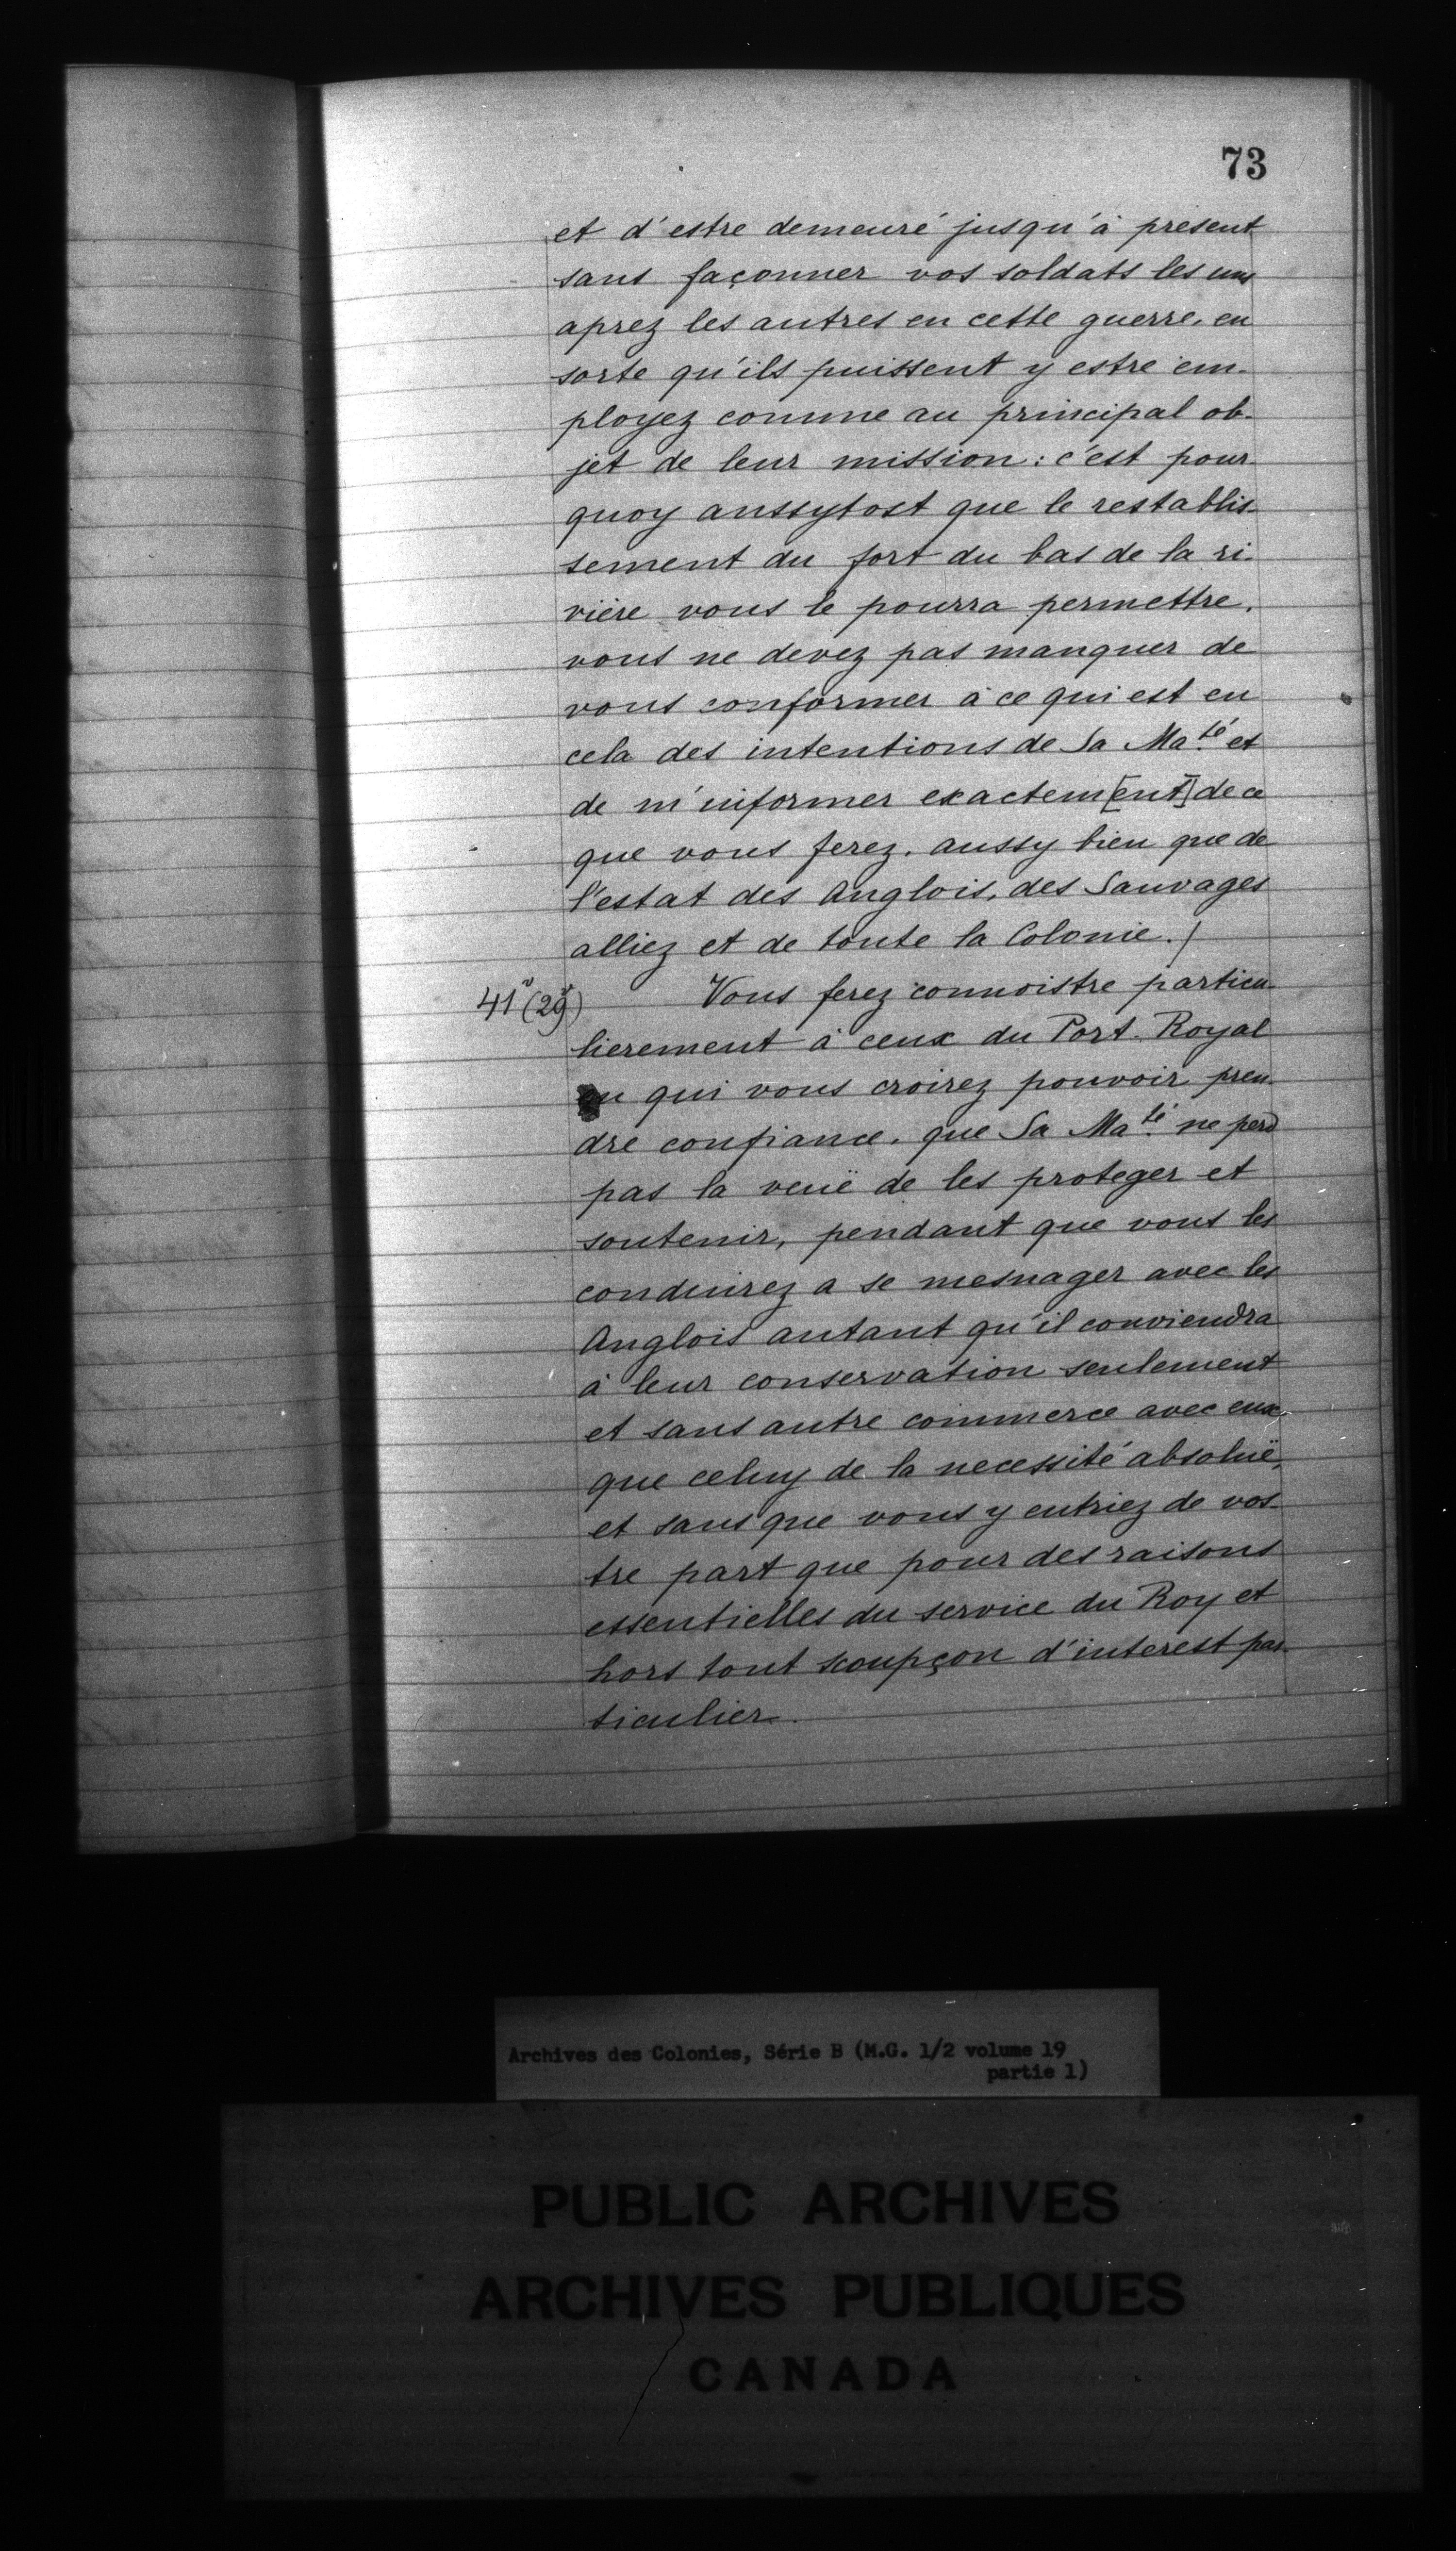 73
et d'estre demeuré jusqu'à present
sans façonner vos soldats les uns
aprez les autres en cette guerre, en
sorte qu'ils puissent y estre em-
ployez comme au principal ob-
jet de leur mission : c'est pour-
quoy aussytost que le restablis-
sement du fort du bas de la ri-
vière vous le pourra permettre,
vous ne devez pas manquer de
vous conformer à ce qui est en
cela des intentions de Sa Ma.té et
de m'informer exactem[ent] de ce
que vous ferez, aussy bien que de
l'estat des Anglois, des Sauvages
alliez et de toute la Colonie. /
41 (29) Vous ferez connoistre particu-
lierement à ceux du Port-Royal
en qui vous croirez pouvoir pren-
dre confiance, que Sa Ma.té ne perd
pas la veuë de les proteger et
soutenir, pendant que vous les
conduirez a se mesnager avec les
Anglois autant qu'il conviendra
à leur conservation seulement
et sans autre commerce avec eux
que celuy de la necessité absoluë,
et sans que vous y entriez de vos-
tre part que pour des raisons
essentielles du service du Roy et
hors tout scoupçon d'interest par-
ticulier.
Archives des Colonies, Série B (M.G. 1/2 volume 19
partie 1)
PUBLIC ARCHIVES
ARCHIVES PUBLIQUES
CANADA